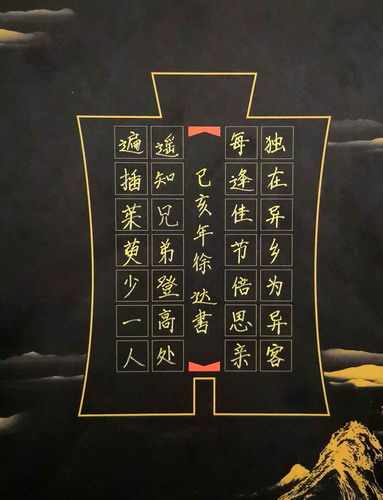 独在异乡为异客
每逢佳节倍思亲
己亥年徐达书
遥知兄弟登高处
遍插茱萸少一人